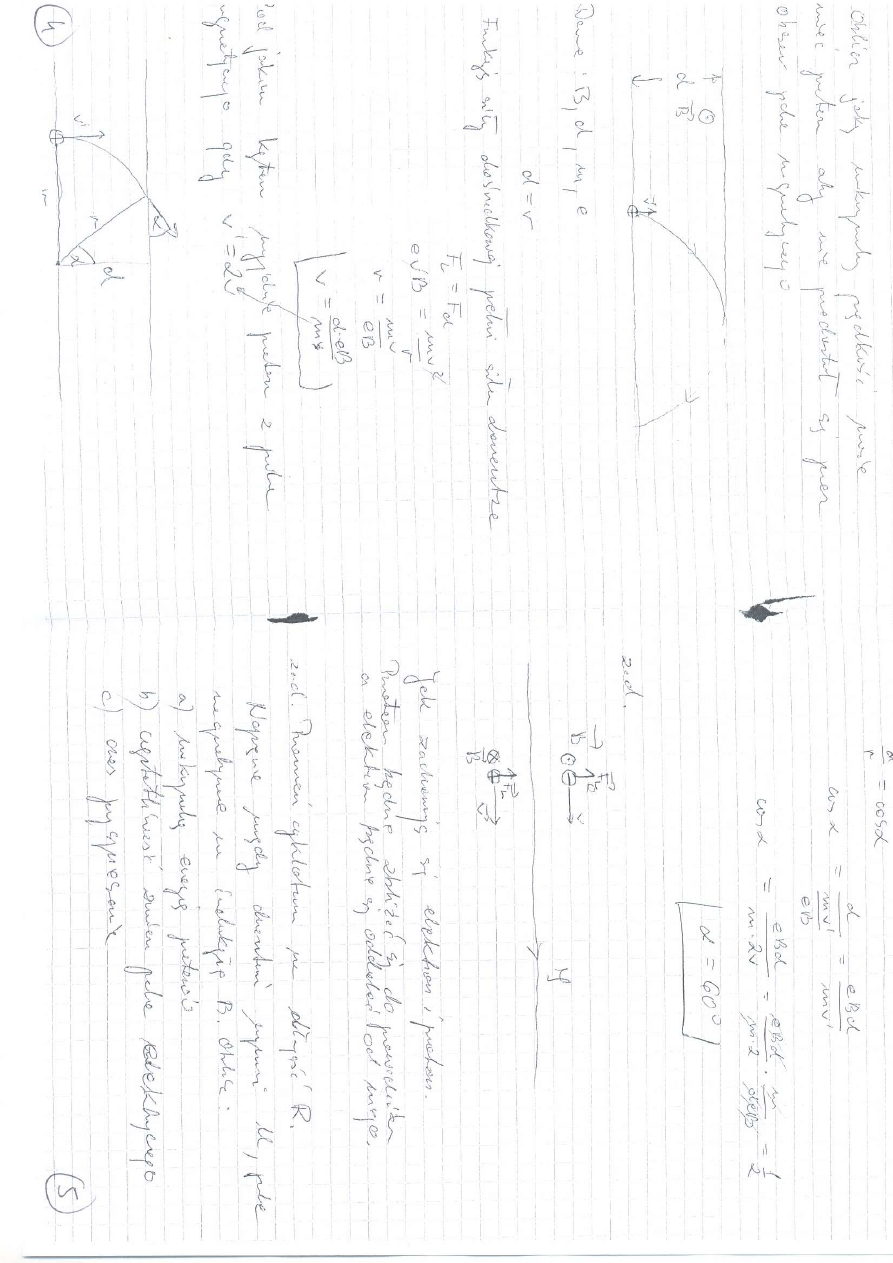 Oblicz jaką maksymalną prędkość może
mieć proton aby nie przedostał się przez
obszar pola magnetycznego
B
d
v
Dane: B, d, m, e
d = r
Funkcję siły dośrodkowej pełni siła Lorentza
F_L = F_d
evB = mv²/r
r = mv/eB
v = d·eB/m
Pod jakim kątem wyjdzie proton z pola
magnetycznego gdy v' = 2v
v'
r
α
d
α
r
4
d/r = cosα
cos α = d/(mv'/eB) = eBd/mv'
cos α = eBd/m·2v = eBd/m·2 · m/deB = 1/2
α = 60°
zad.
B F_L
v
I
F_L
B v
Jak zachowają się elektron i proton.
Proton będzie zbliżać się do przewodnika
a elektron będzie się oddalać od niego.
zad. Promień cyklotronu ma długość R.
Napięcie między duantami wynosi U, pole
magnetyczne ma indukcję B. Oblicz:
a) maksymalną energię protonów
b) częstotliwość zmian pola elektrycznego
c) czas przyspieszania
5